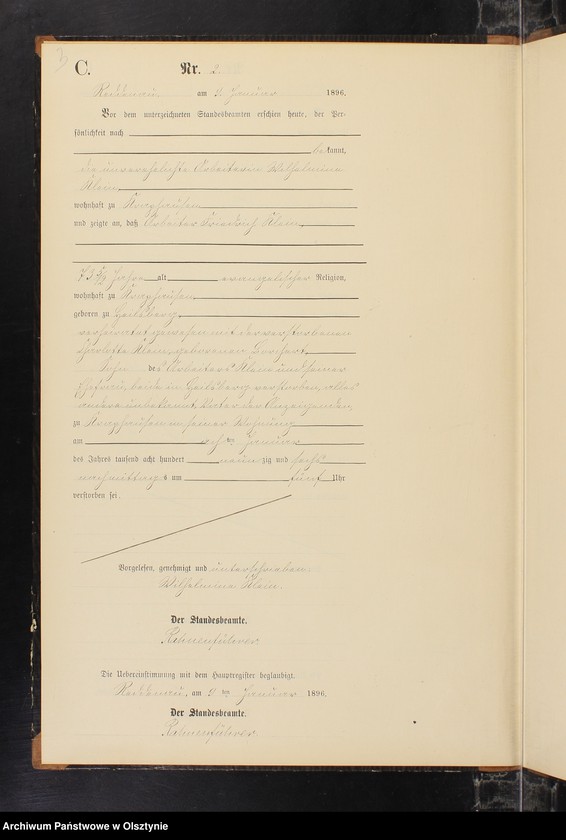 3
C.
Nr. 2
Reddenau am 9. Januar 1896.
Vor dem unterzeichneten Standesbeamten erschien heute, der Per-
sönlichkeit nach
bekannt,
die unverehelichte Arbeiterin Wilhelmine
Klein,
wohnhaft zu
und zeigte an, daß Arbeiter Friedrich Klein,
73 Jahre alt, evangelischer Religion,
wohnhaft zu
geboren zu Heilsberg,
verheiratet gewesen mit der verstorbenen
Charlotte Klein, geborenen Borchert,
Sohn des Arbeiters Klein und seiner
Ehefrau, beide in Heilsberg verstorben, alles
andere unbekannt, Vater der Anzeigenden,
zu in seiner Wohnung
am acht ten Januar
des Jahres tausend acht hundert neun zig und sechs
nachmittags um fünf Uhr
verstorben sei.
Vorgelesen, genehmigt und unterschrieben:
Wilhelmine Klein.
Der Standesbeamte.
Die Uebereinstimmung mit dem Hauptregister beglaubigt.
Reddenau, am 9 ten Januar 1896.
Der Standesbeamte.
Archiwum Państwowe w Olsztynie